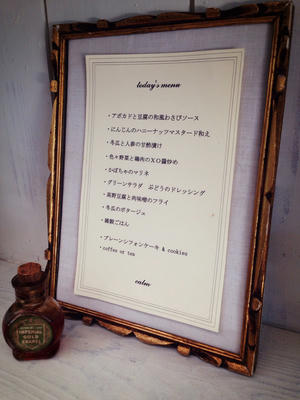 today's menu
・アボカドと豆腐の和風わさびソース
・にんじんのハニーナッツマスタード和え
・冬瓜と人参の甘酢漬け
・色々野菜と鶏肉のXO醤炒め
・かぼちゃのマリネ
・グリーンサラダ　ぶどうのドレッシング
・高野豆腐と肉味噌のフライ
・冬瓜のポタージュ
・雑穀ごはん
・プレーンシフォンケーキ & cookies
・coffee or tea
calm
IMPERIAL
GOLD